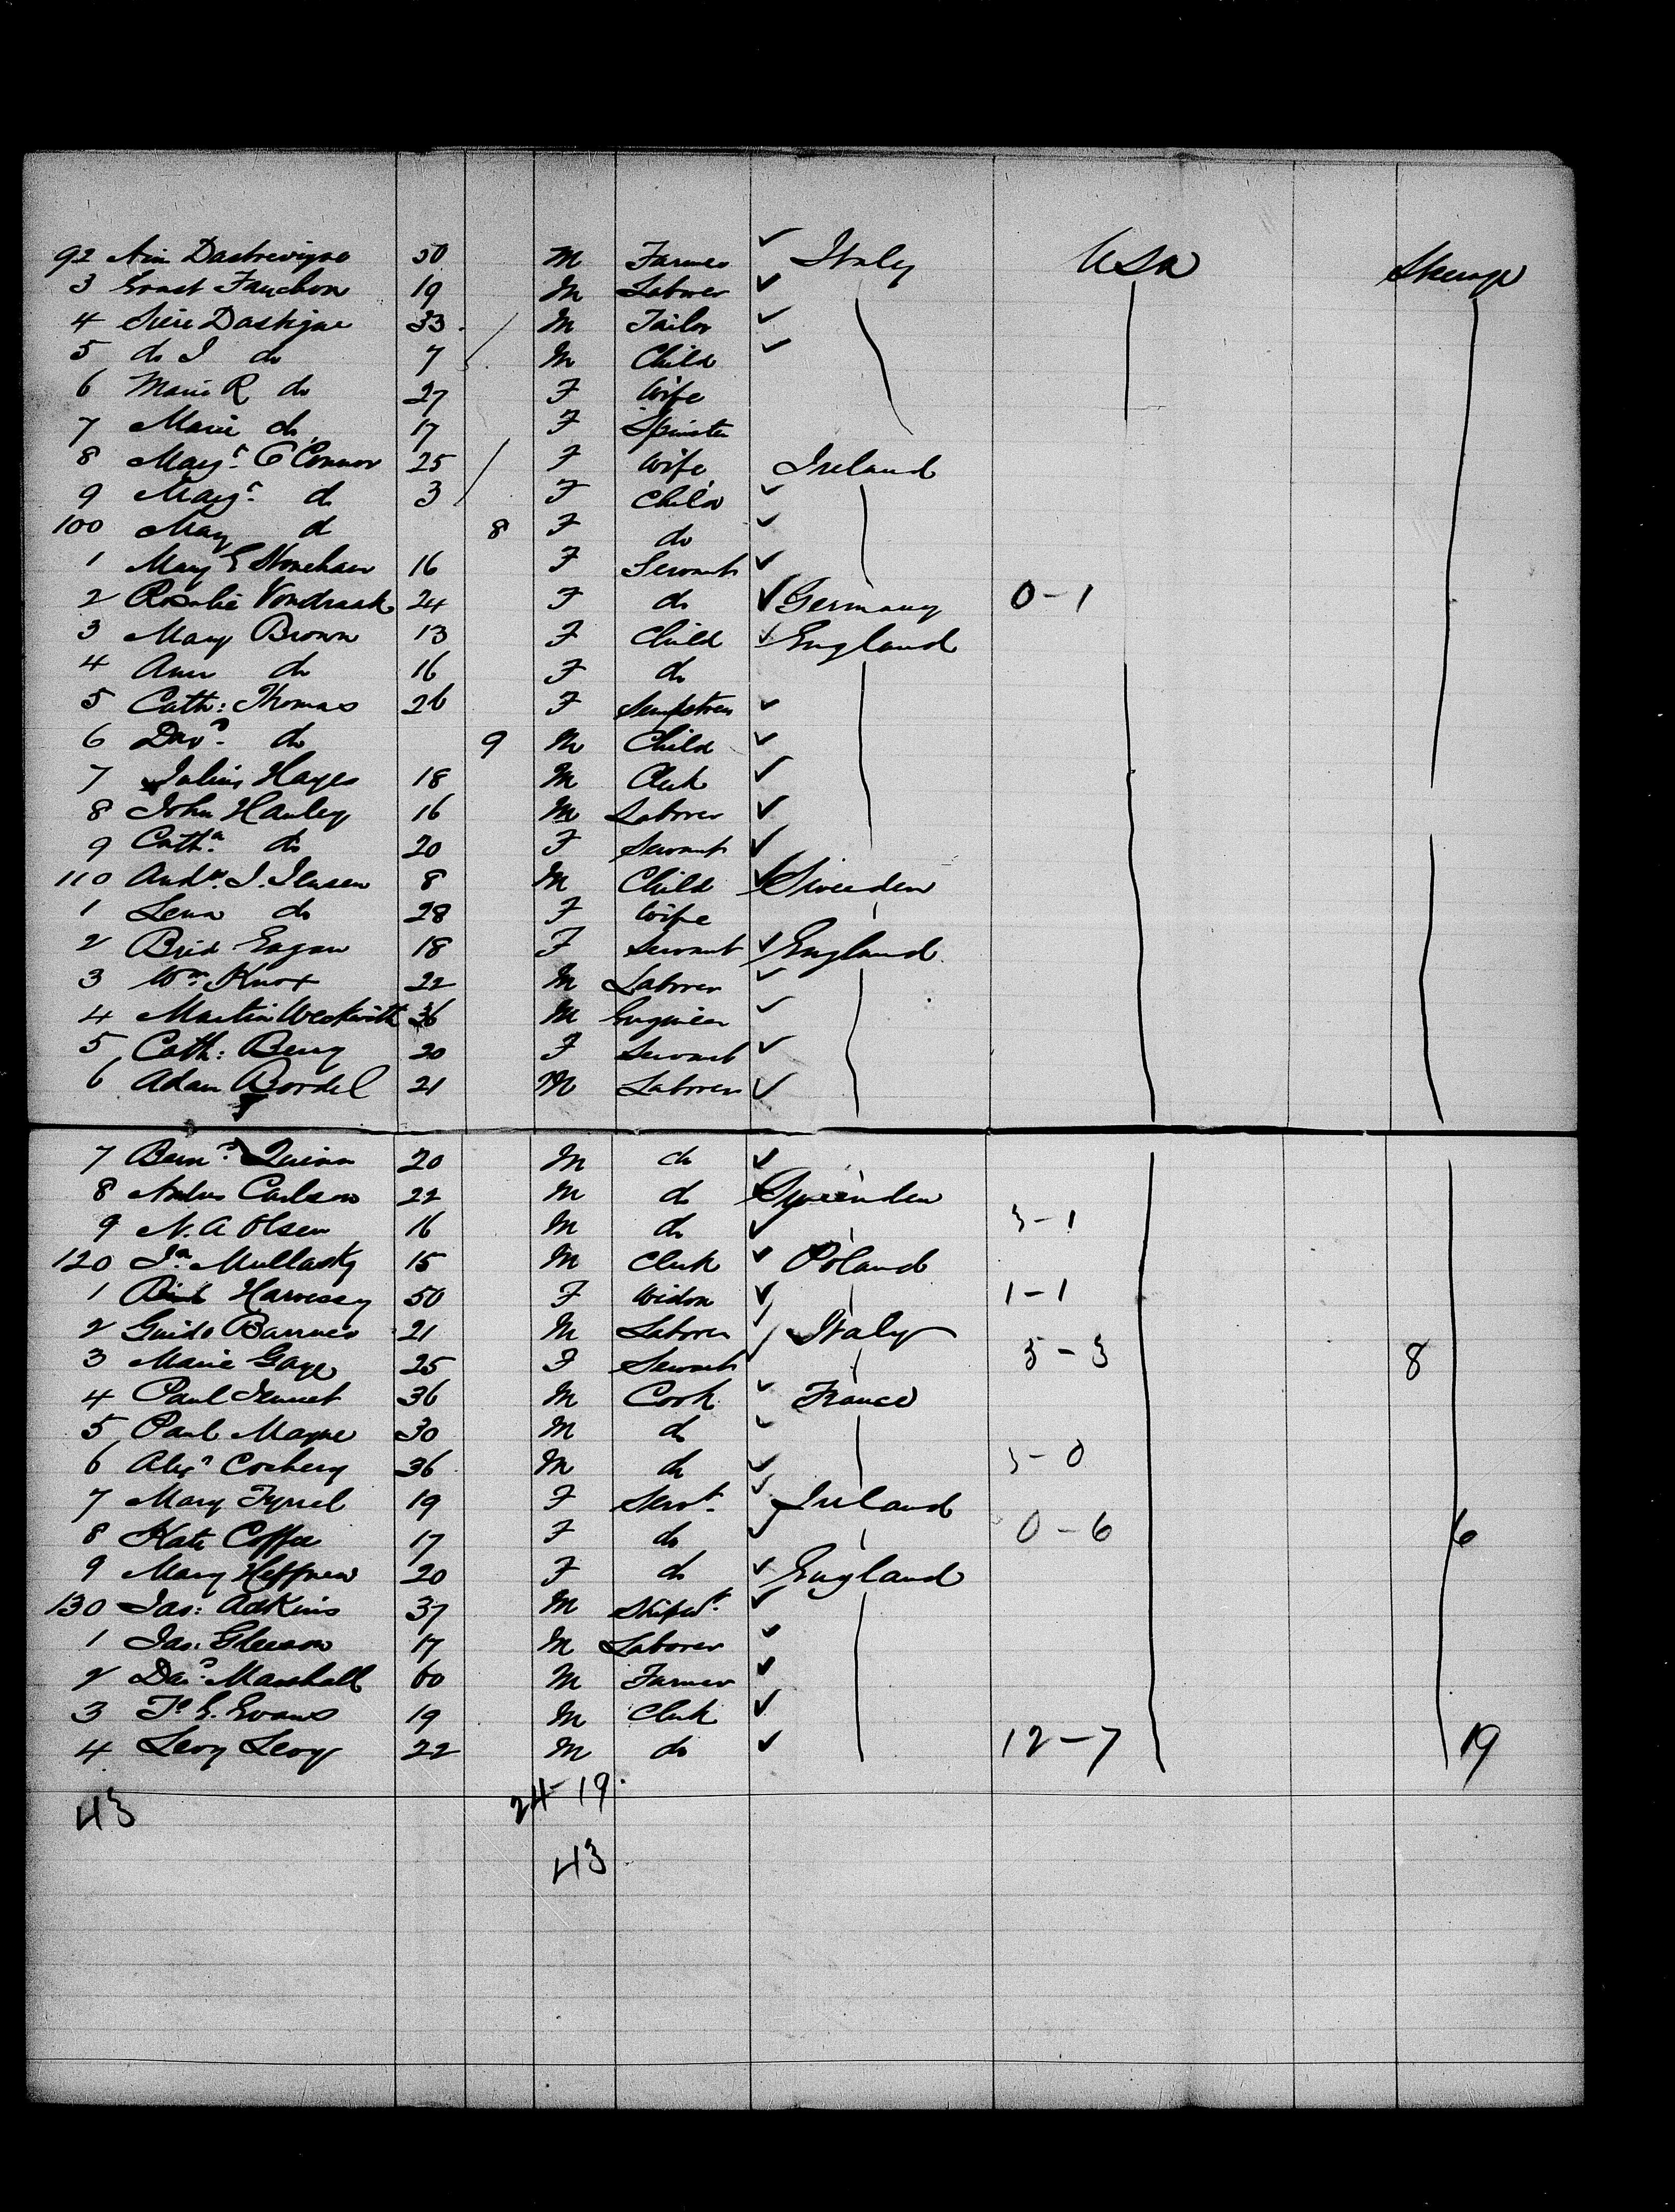 92 Dastrevigne 50 M Farmer Italy USA Steerage
3 Ernest Fauchon 19 M Laborer
4 33 M Tailor
5 do J do 7 M Child
6 Marie R do 27 F Wife
7 Marie do 17 F Spinster
8 Margt. O'Connor 25 F Wife Ireland
9 Margt. do 3 F Child
100 May d 8 F do
1 Mary E 16 F Servant
2 Rosalie Vondraak 24 F do Germany 0-1
3 Mary Brown 13 F Child England
4 Ann do 16 F do
5 Cath: Thomas 26 F Sempstress
6 Davd. do 9 M Child
7 Julius Hayes 18 M Clerk
8 John Hanley 16 M Laborer
9 Catha. do 20 F Servant
110 Andw. J. Jensen 8 M Child Sweeden
1 Lena do 28 F Wife
2 Brid Eagan 18 F Servant England
3 Wm. Knox 22 M Laborer
4 Martin 36 M Engineer
5 Cath: Berry 20 F Servant
6 Adam Bordel 21 M Laborer
7 Bernd. Quinn 20 M do
8 Carlson 22 M do Sweeden
9 N. A Olsen 16 M do 3-1
120 Jn. Mullasky 15 M Clerk Poland
1 Harvesey 50 F Widow 1-1
2 Guido Barrues 21 M Laborer Italy
3 Marie Gaye 25 F Servant 5-3 8
4 Paul 36 M Cook France
5 Paul Mayne 30 M do
6 Alexr Corbery 36 M do 3-0
7 Mary Tyrrel 19 F Servt. Ireland
8 Kate Coffee 17 F do 0-6 6
9 Mary Heffrew 20 F do England
130 Jas: Adkins 37 M
1 Jas. Gleeson 17 M Laborer
2 Davd. Marshall 60 M Farmer
3 To. E. Evans 19 M Clerk
4 Levy Levy 22 M do 12-7 19
43 24-19.
43